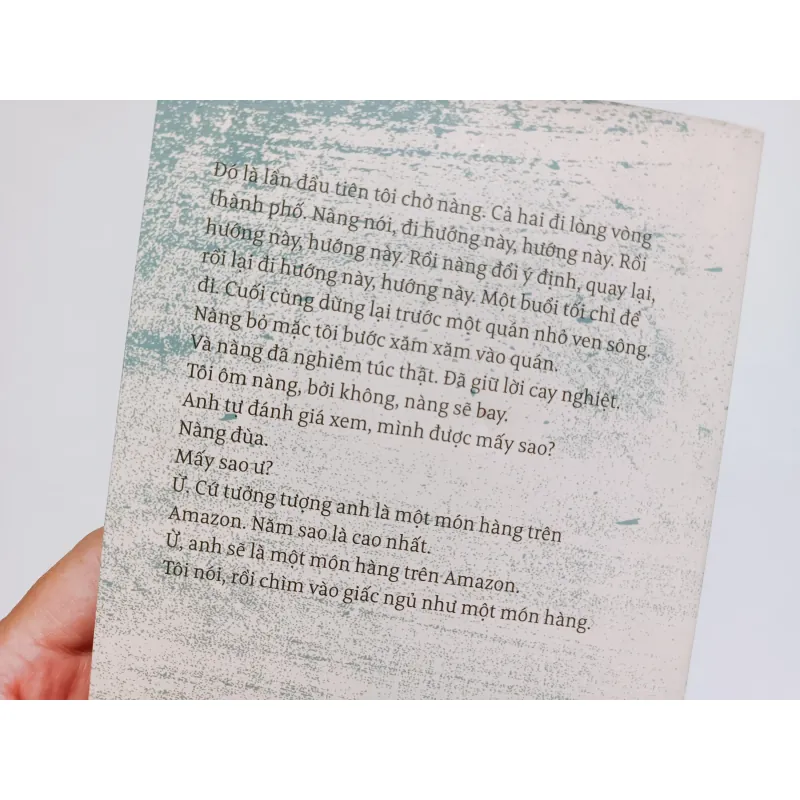 Đó là lần đầu tiên tôi chở nàng. Cả hai đi lòng vòng
thành phố. Nàng nói, đi hướng này, hướng này. Rồi
hướng này, hướng này. Rồi nàng đổi ý định, quay lại,
rồi lại đi hướng này, hướng này. Một buổi tối chỉ để
đi. Cuối cùng dừng lại trước một quán nhỏ ven sông.
Nàng bỏ mặc tôi bước xăm xăm vào quán.
Và nàng đã nghiêm túc thật. Đã giữ lời cay nghiệt.
Tôi ôm nàng, bởi không, nàng sẽ bay.
Anh tự đánh giá xem, mình được mấy sao?
Nàng đùa.
Mấy sao ư?
Ừ. Cứ tưởng tượng anh là một món hàng trên
Amazon. Năm sao là cao nhất.
Ừ, anh sẽ là một món hàng trên Amazon.
Tôi nói, rồi chìm vào giấc ngủ như một món hàng.